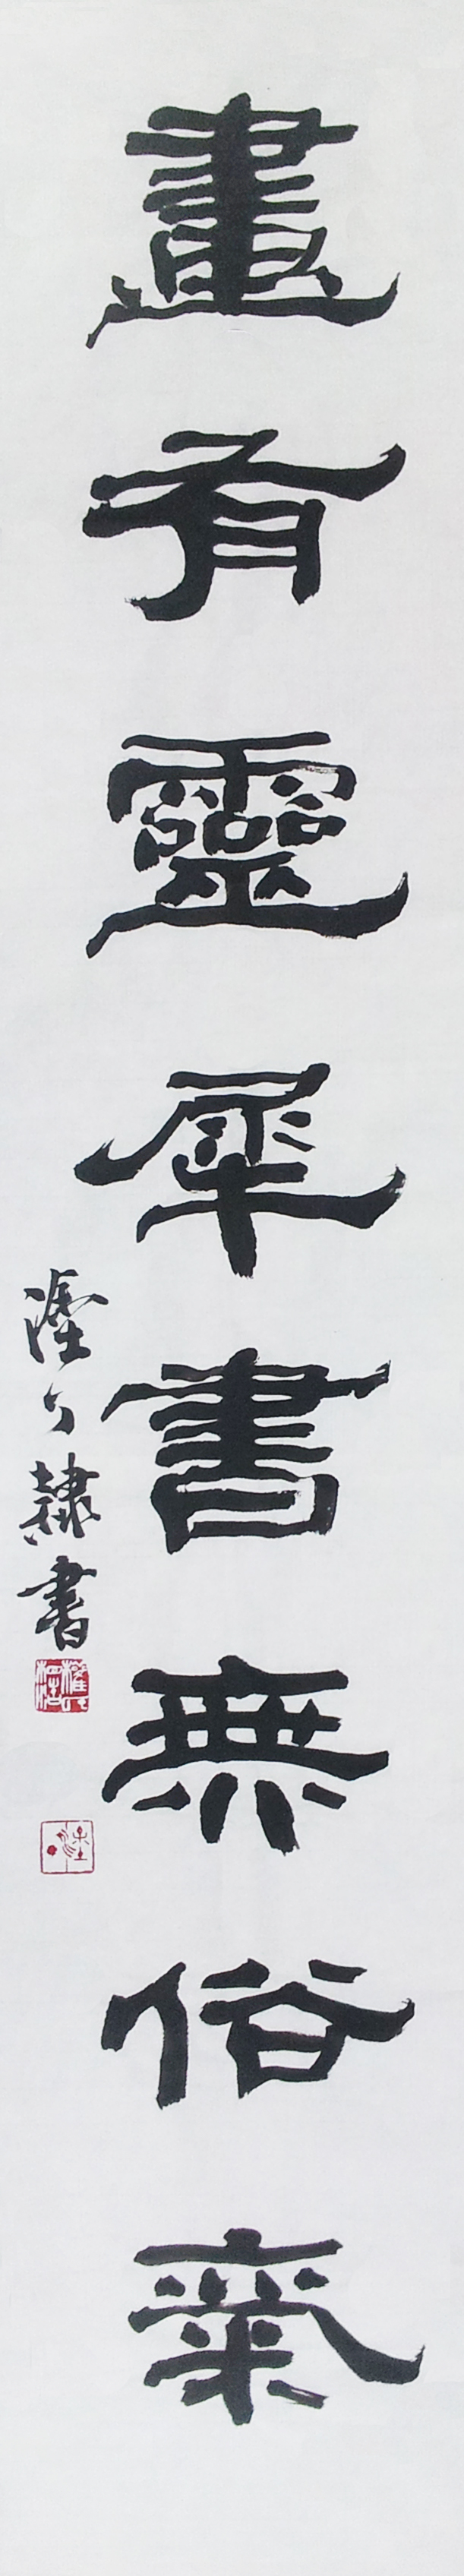 畫有靈犀書無俗氣
隸書